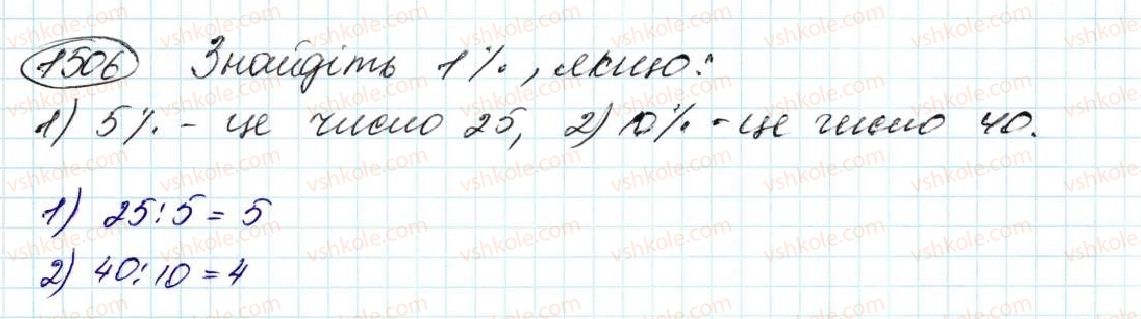 1506 Знайдіть 1%, якщо:
1) 5% - це число 25, 2) 10% - це число 40.
1) 25:5 = 5
2) 40:10 = 4